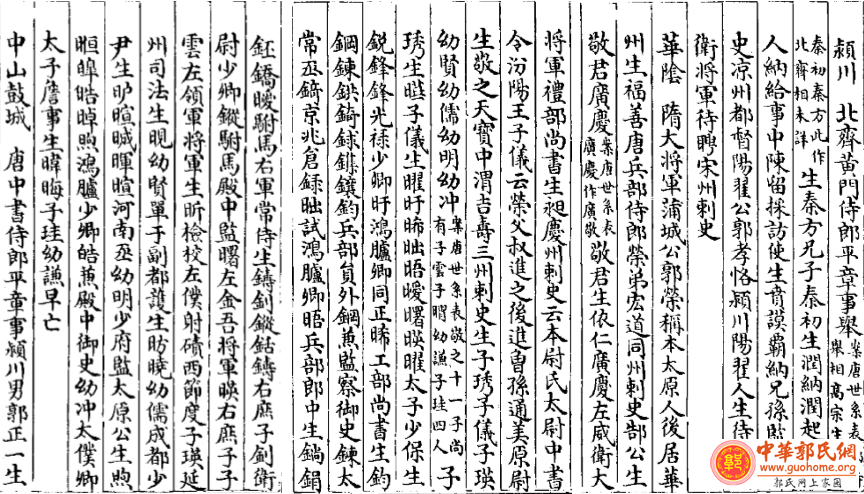 潁川　北齊黃門侍郎平章事舉案唐世系表
舉相高宗生
秦初秦方此作
北齊相未詳生秦方兄子秦初生潤納潤起
人納給事中陳留採訪使生育謨霸納兄孫
史凉州都督陽翟公郭孝恪潁川陽翟人生待
衛將軍待聘宋州剌史
華陰　隋大將軍蒲城公郭榮稱本太原人後居華
州生福善唐兵部侍郎榮弟弘道同州刺史郜公生
敬君廣慶案唐世系表
廣慶作廣敬敬君生依仁廣慶左威衛大
將軍禮部尚書生昶慶州刺史云本尉氏太尉中書
令汾陽王子儀云榮父叔進之後進曾孫通美原尉
生敬之天寶中渭吉壽三州刺史生子琇子儀子瑛
幼賢幼儒幼明幼冲案唐世系表敬之十一子尚
有子雲子曜幼謙子珪四人子
琇生㬎子儀生曜旰晞昢晤曖曙暎曜太子少保生
銳鋒鋒光祿少卿旰鴻臚卿同正晞工部尚書生鈞
鋼鍊鉷錡銶鏶鑲鈞兵部員外鋼兼監察御史鍊太
常丞錡京兆倉錄昢試鴻臚卿晤兵部郎中生鋿鋗
鉟鐈曖駙馬右軍常侍生鑄釗鏦銛鑄右庶子釗衛
尉少卿鏦駙馬殿中監曙左金吾將軍暎右庶子子
雲左領軍將軍生昕檢校左僕射磧西節度子瑛延
州司法生晛幼賢單于副都護生昉曉幼儒成都少
尹生昈暄㖑暉暄河南丞幼明少府監太原公生煦
晅皥晧晫煦鴻臚少卿晧兼殿中御史幼冲太僕卿
太子詹事生暐晦子珪幼謙早亡
中山鼓城　唐中書侍郎平章事潁川男郭正一生
中華郭氏網
www.guohome.org
郭氏网上家園